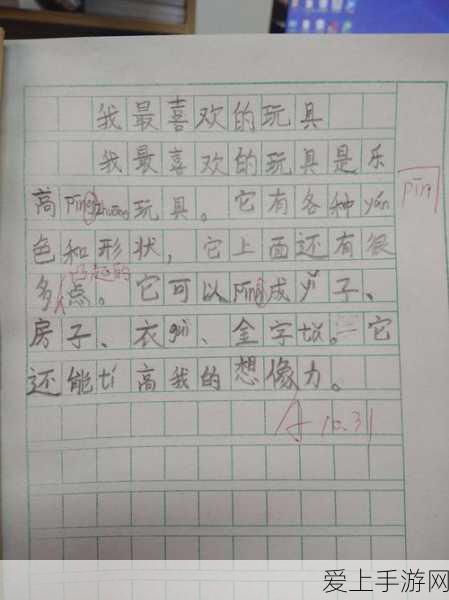 我最喜欢的玩具
我最喜欢的玩具是乐
高pīngzhuāng玩具。它有各种yán
pīn
色和形状，它上面还有很
凸起的
多点。它可以pīng成yǐ子、
房子、衣guì、金字tǎ。它
还能tí高我的想像力。
A 10.31
爱上手游网